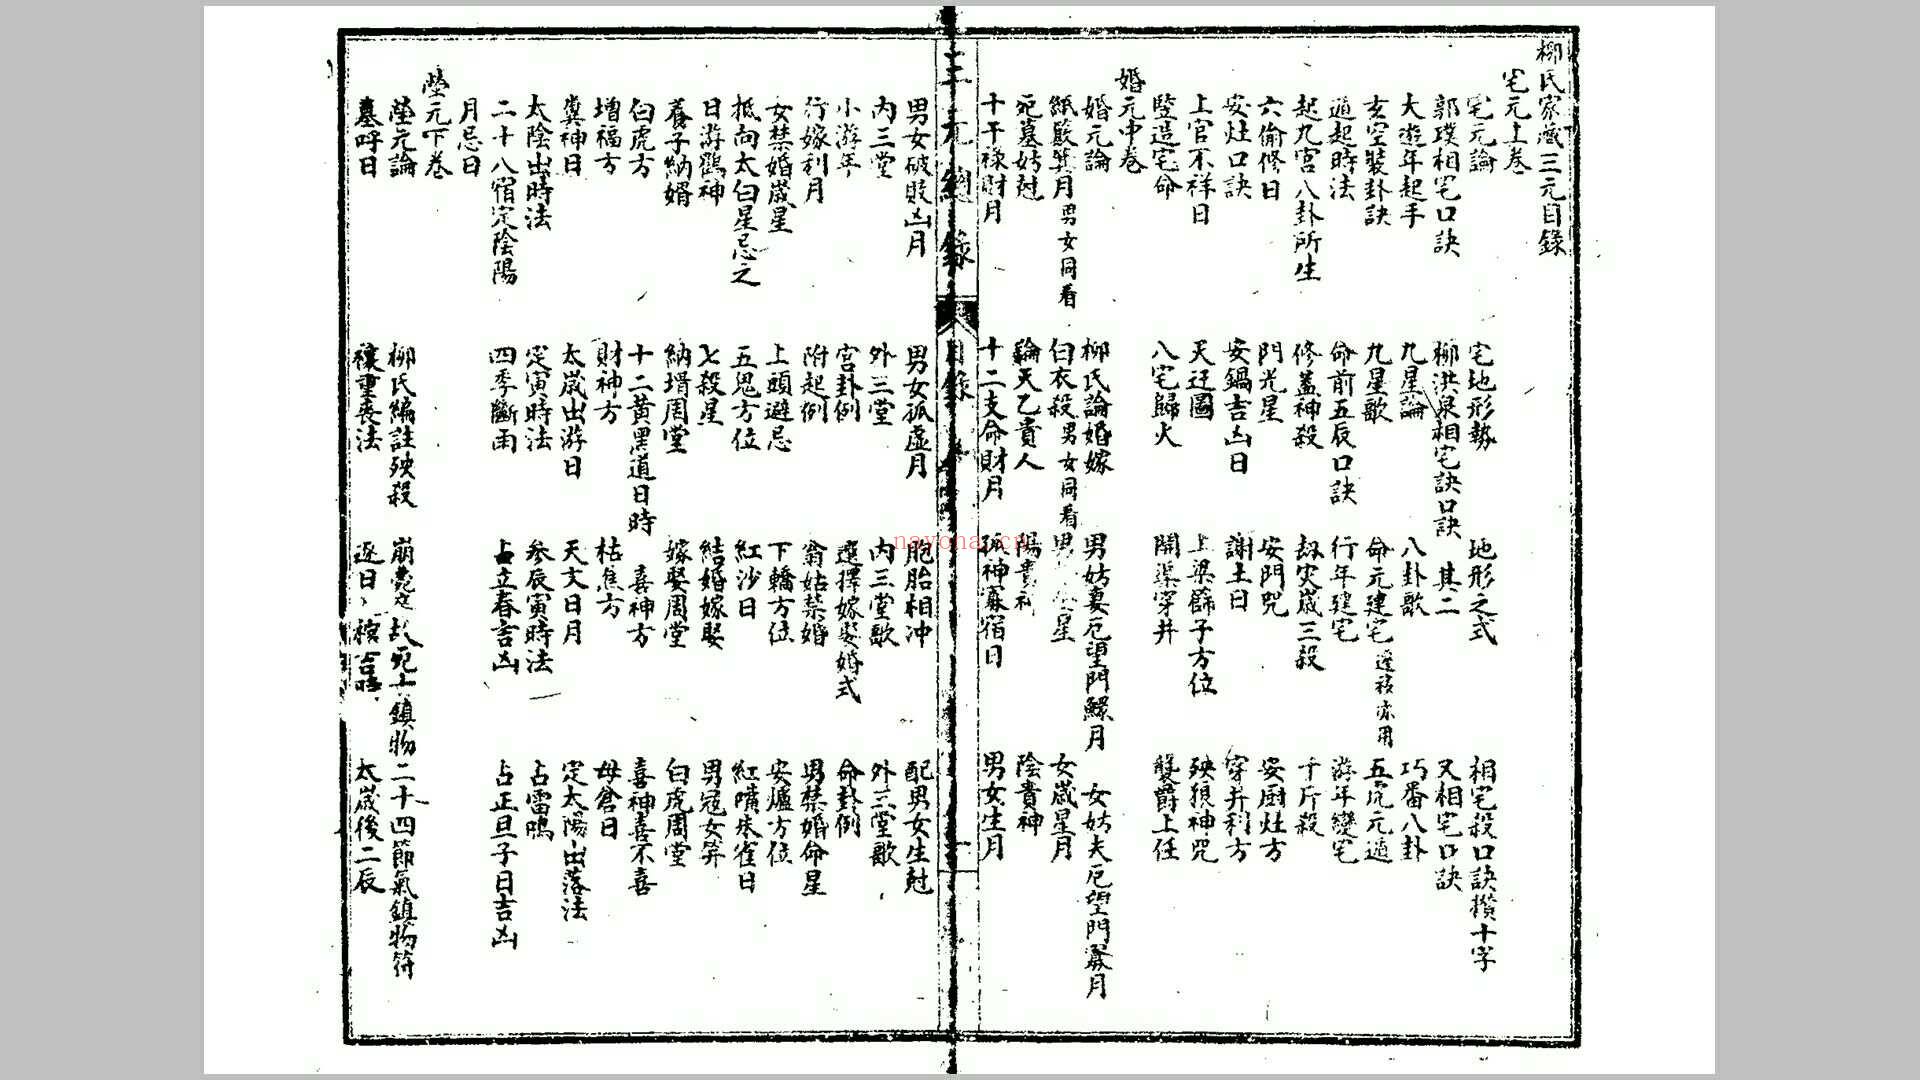 柳氏家藏三元目錄
宅元上卷
宅元論 宅地形勢 地形之式 相宅殺口訣攢十字
郭璞相宅口訣 柳洪泉相宅訣口訣 其二 又相宅口訣
大遊年起手 九星論 八卦歌 巧番八卦
玄空裝卦訣 九星歌 命元建宅遷移亦用 五虎元遁
遁起時法 命前五辰口訣 行年建宅 游年變宅
起九宮八卦所生 修蓋神殺 劫灾歲三殺 千斤殺
六偷修日 門光星 安門咒 安厨灶方
安灶口訣 安鍋吉凶日 謝土日 穿井利方
上官不祥日 天迁圖 上梁篩子方位 殃狽神咒
豎造宅命 八宅歸火 開渠穿井 襲爵上任
婚元中卷
婚元論 柳氏論婚嫁 男妨妻厄望門鰥月 女妨夫厄望門寡月
紙厫箕月男女同看 白衣殺男女同看 男 星 女歲星月
死墓妨尅 論天乙貴人 陽貴神 陰貴神
十干祿財月 十二支命財月 孤神寡宿日 男女生月
三元總錄 目錄
男女破敗凶月 男女孤虛月 胞胎相冲 配男女生尅
內三堂 外三堂 內三堂歌 外三堂歌
小游年 宮卦例 選擇嫁娶婚式 命卦例
行嫁利月 附起例 翁姑禁婚 男禁婚命星
女禁婚歲星 上頭避忌 下轎方位 安爐方位
抵向太白星忌之 五鬼方位 紅沙日 紅嘴朱雀日
日游鶴神 七殺星 結婚嫁娶 男冠女筓
養子納婿 納壻周堂 嫁娶周堂 白虎周堂
白虎方 十二黄黑道日時 喜神方 喜神喜不喜
增福方 財神方 枯焦方 母倉日
糞神日 太歲出游日 天文日月 定太陽出落法
太陰出時法 定寅時法 参辰寅時法 占雷鳴
二十八宿定陰陽 四季斷雨 占立春吉凶 占正旦子日吉凶
月忌日
塋元下卷
塋元論 柳氏編註殃殺 崩薨 故死 鎮物 二十四節氣鎮物符
墓呼日 禳重丧法 逐日 太歲後二辰
nayona.cn